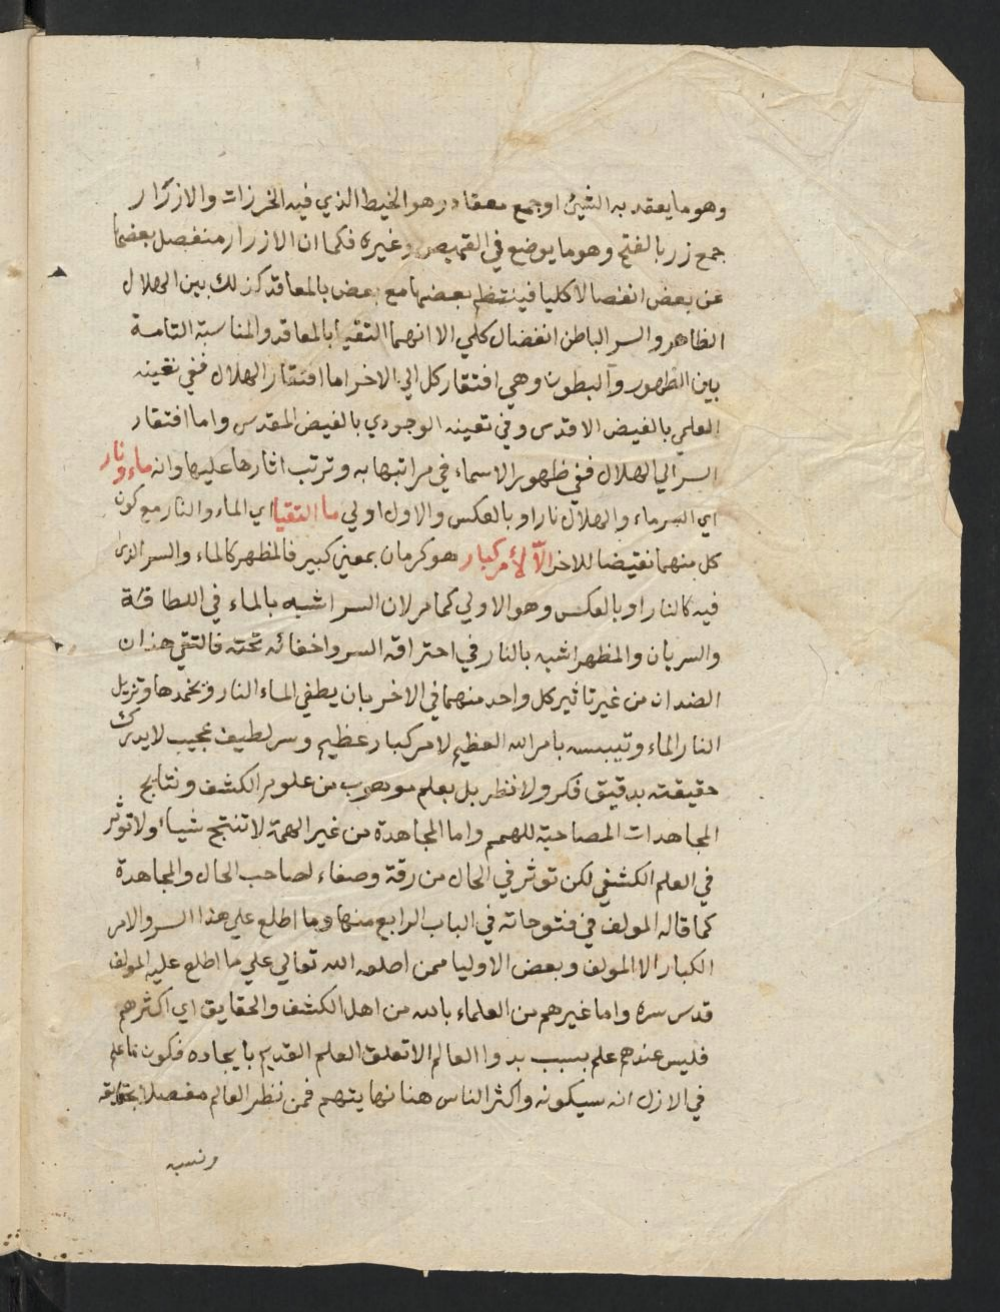 وهو ما يعقد به الشيئ او جمع معقاد وهو الخيط الذي فيه الخرزات والازرار
جمع زر بالفتح وهو ما يوضع في القميص وغيره فكما ان الازرار منفصل بعضها
عن بعض انفصالا كليا فينتظم بعضها مع بعض بالمعاقد كذلك بين الهلال
الظاهر والسر الباطن انفصال كلي الا انهما التقيا بالمعاقد والمناسبة التامة
بين الظهور والبطون وهي افتقار كل الي الاخر اما افتقار الهلال ففي تعينه
العلمي بالفيض الاقدس وفي تعينه الوجودي بالفيض المقدس واما افتقار
السر الي الهلال ففي ظهور الاسماء في مراتبها به وترتب اثارها عليها وانه ماء ونار
اي السر ماء والهلال نار او بالعكس والاول اولي ما التقيا اي الماء والنار مع كون
كل منهما نقيضا للاخر الا لأمر كبار هو كرمان بمعني كبير فالمظهر كالماء والسر الذي
فيه كالنار او بالعكس وهو الاولي كما مر لان السر اشبه بالماء في اللطافة
والسريان والمظهر اشبه بالنار في احتراقه السر واخفائه تحته فالتقي هذان
الضدان من غير تاثير كل واحد منهما في الاخر بان يطفي الماء النار ويخمدها وتزيل
النار الماء وتيبسه بامر الله العظيم لامر كبار عظيم وسر لطيف عجيب لا يدرك
حقيقته بدقيق فكر ولا نظر بل بعلم موهوب من علوم الكشف ونتايج
المجاهدات المصاحبة للهمم واما المجاهدة من غير الهمة لا تنتج شياء ولا توثر
في العلم الكشفي لكن توثر في الحال من رقة وصفاء لصاحب الحال والمجاهدة
كما قاله المولف في فتوحاته في الباب الرابع منها وما اطلع علي هذا السر والامر
الكبار الا المولف وبعض الاوليا ممن اطلعه الله تعالي علي ما اطلع عليه المولف
قدس سره واما غيرهم من العلماء بالله من اهل الكشف والحقايق اي اكثرهم
فليس عندهم علم بسبب بدوا العالم الا تعلق العلم القديم بايجاده فكون ما علم
في الازل انه سيكونه واكثر الناس هنا نهايتهم فمن نظر العالم مفصلا بحقايقه
ونسبه